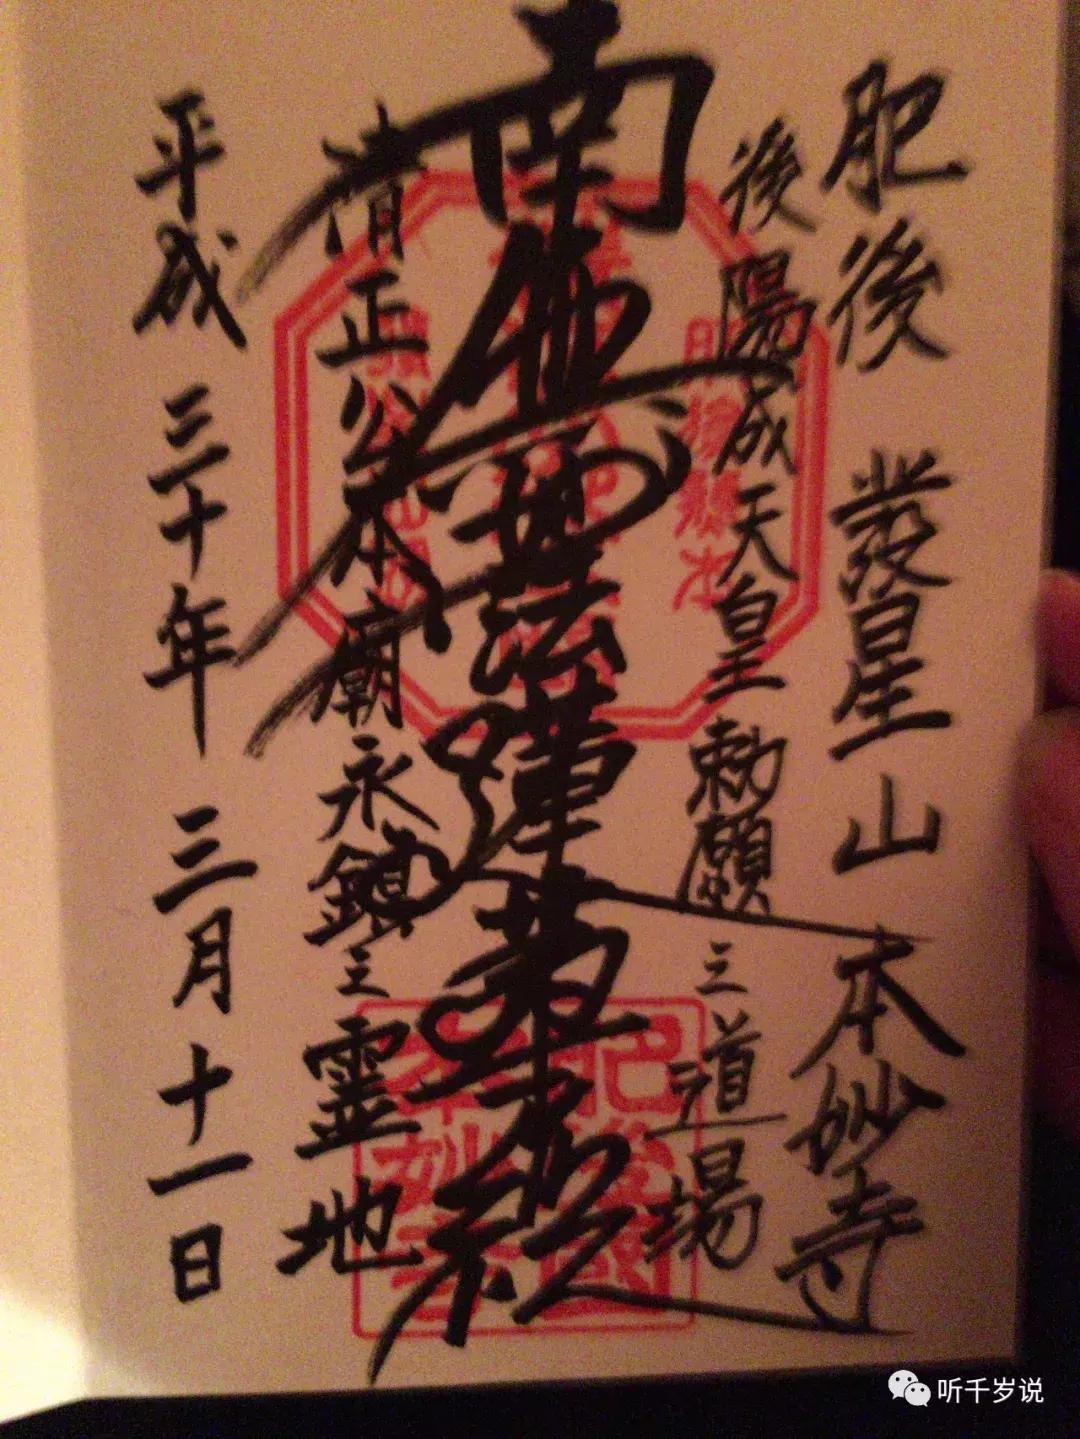 肥後 發星山 本妙寺
後陽成天皇勅願之道場
南無妙法蓮華経
清正公本廟永鎮之霊地
平成三十年三月十一日
肥後國
本妙寺
听千岁说